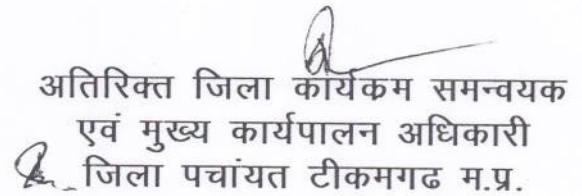 अतिरिक्त जिला कार्यकम समन्वयक
एवं मुख्य कार्यपालन अधिकारी
जिला पचांयत टीकमगढ म.प्र.